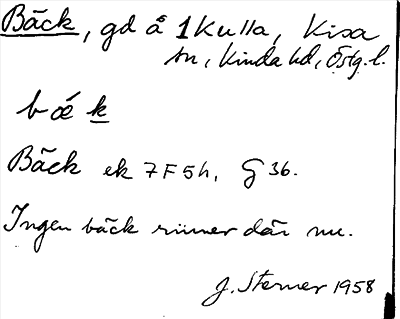 Bäck, gd å 1 Kulla, Kisa
sn, Kinda hd, Östg. l.
bǽk
Bäck ek 7F5h, G 36.
Ingen bäck rinner där nu.
J. Sterner 1958